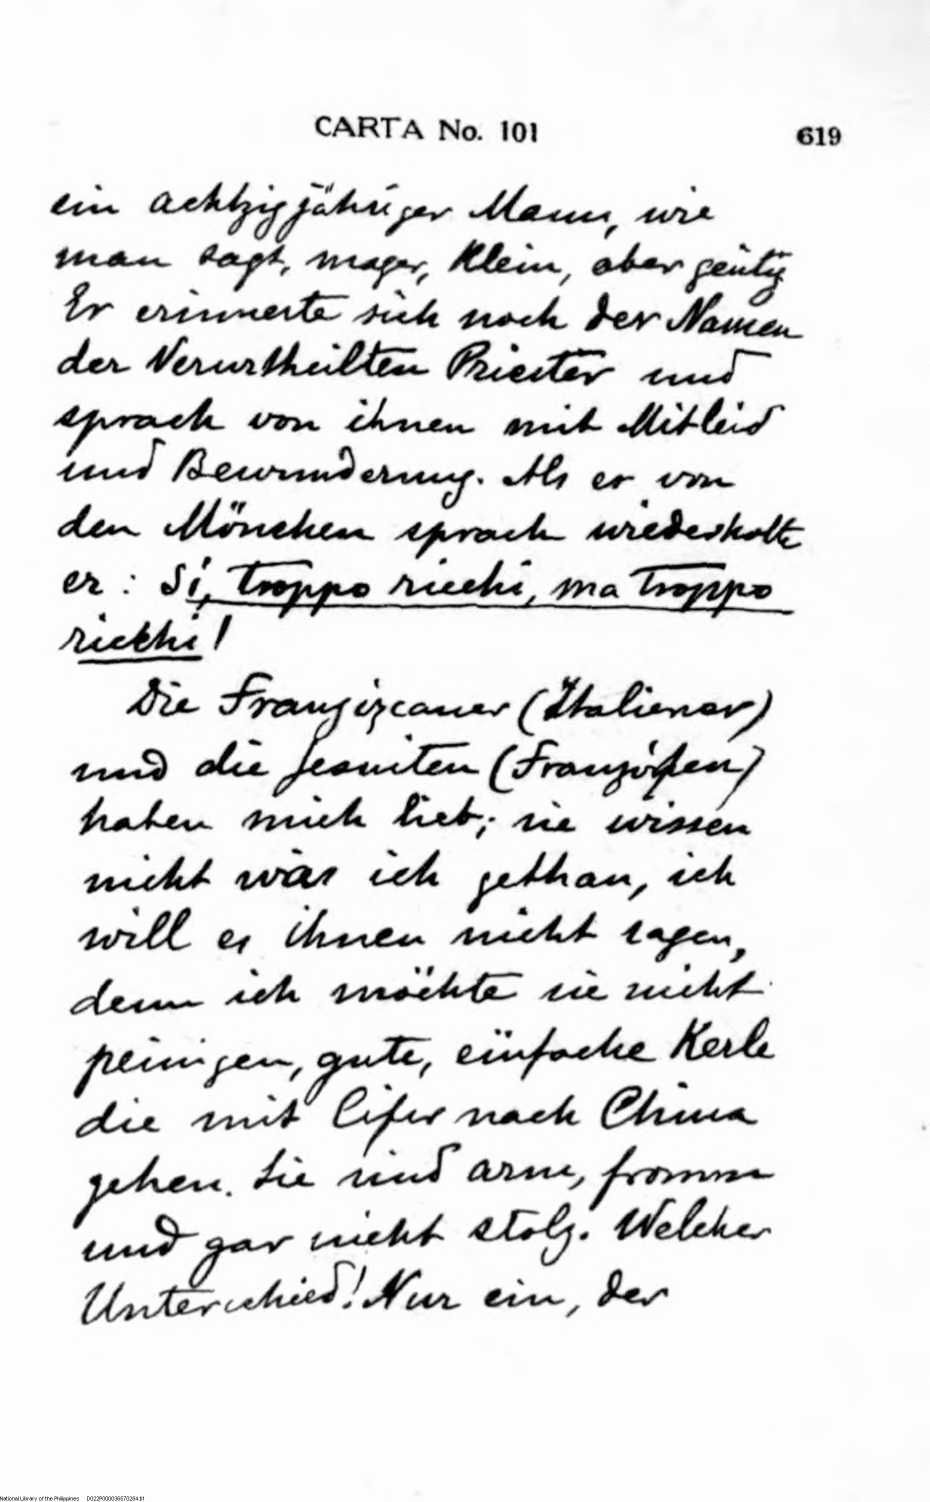 CARTA No. 101
619
ein achtzigjähriger Mann, wie
man sagt, mager, Klein, aber geistig
Er erinnerte sich noch der Namen
der Verurtheilten Priester und
sprach von ihnen mit Mitleid
und Bewunderung. Als er von
den Mönchen sprach wiederholte
er: Si, troppo ricchi, ma troppo
ricchi!
Die Franziscaner (Italiener)
und die Jesuiten (Franzósen)
haben mich lieb; sie wissen
nicht was ich gethan, ich
will es ihnen nicht sagen,
denn ich möchte sie nicht
peinigen, gute, einfache Kerle
die mit Eifer nach China
gehen. Sie sind arm, fromm
und gar nicht stolz. Welcher
Unterschied! Nur ein, der
National Library of the Philippines